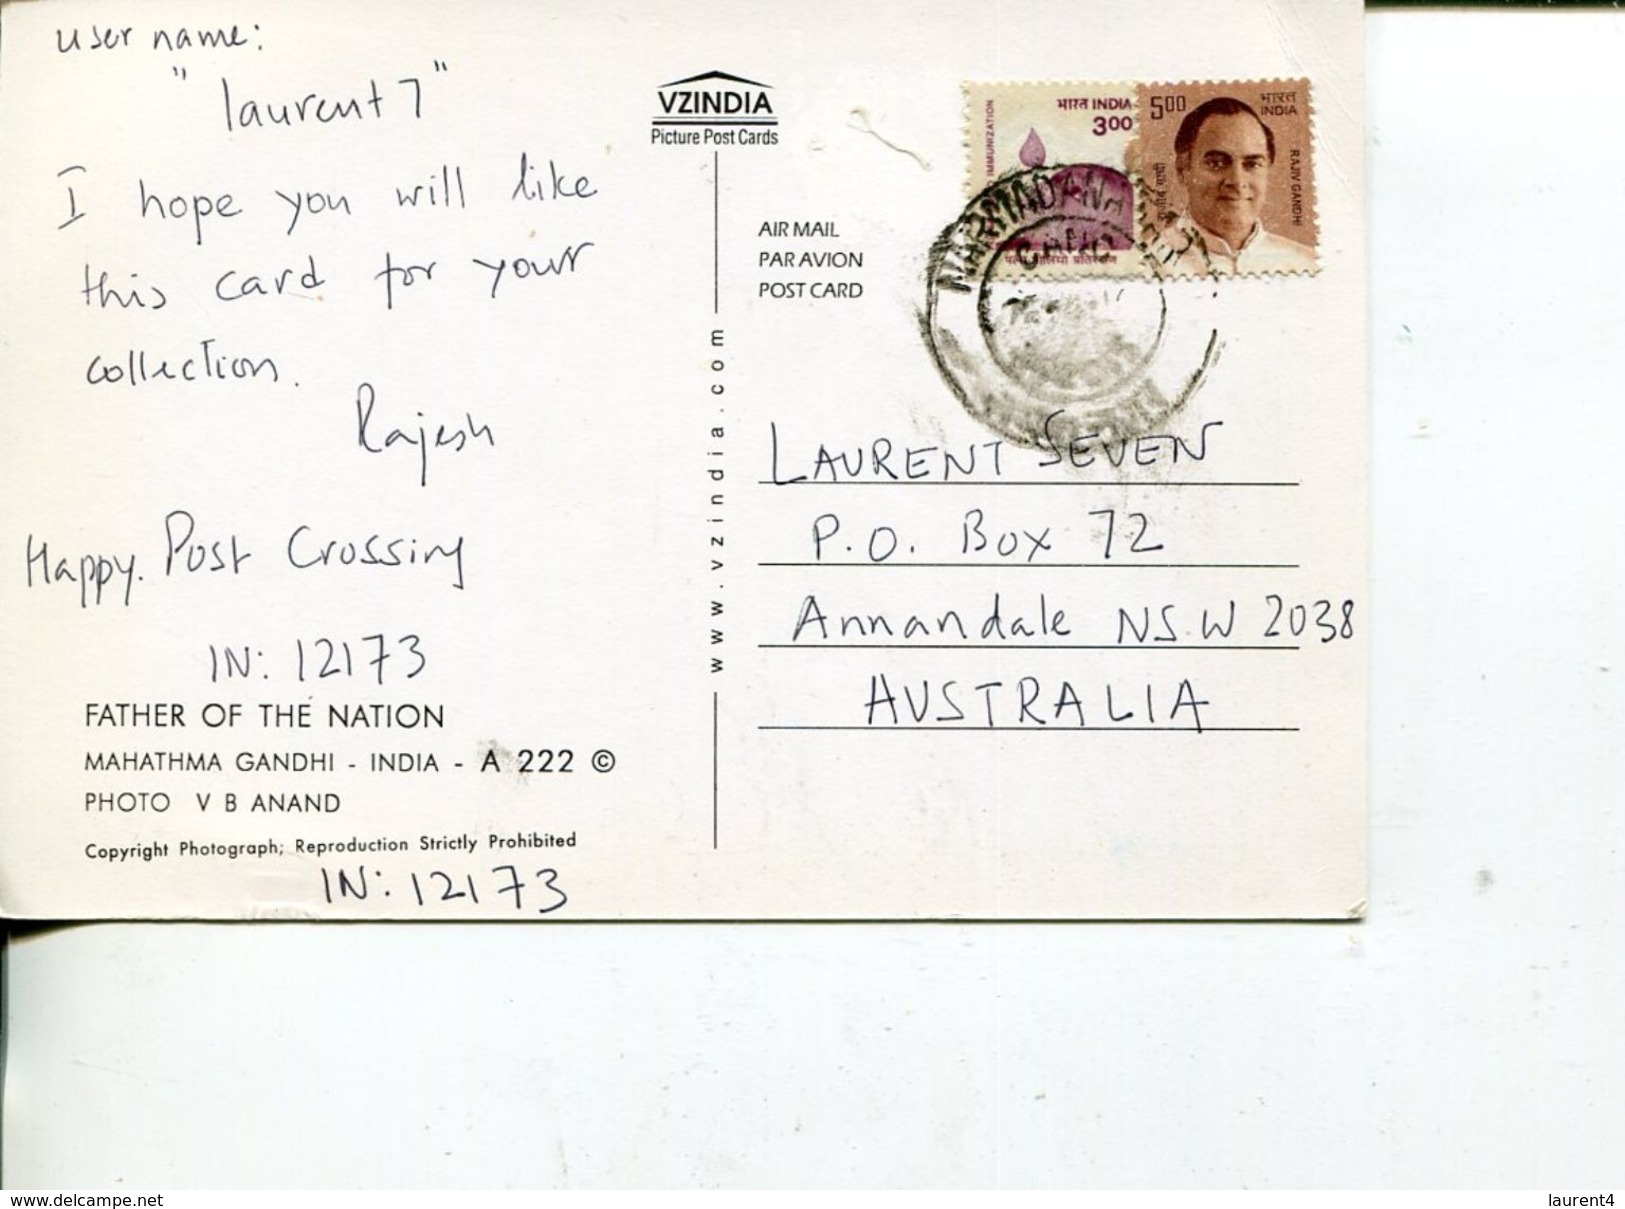 user name:
"laurent7"
I hope you will like
this card for your
collection.
Rajesh
Happy. Post Crossing
IN: 12173
FATHER OF THE NATION
MAHATHMA GANDHI - INDIA - A 222 ©
PHOTO V B ANAND
Copyright Photograph; Reproduction Strictly Prohibited
IN: 12173
VZINDIA
Picture Post Cards
www.vzindia.com
AIR MAIL
PAR AVION
POST CARD
भारत INDIA
3.00
IMMUNIZATION
5.00
भारत
INDIA
RAJIV GANDHI
राजीव गांधी
NARMADANA
LAURENT SEVEN
P.O. Box 72
Annandale NSW 2038
AUSTRALIA
www.delcampe.net
laurent4